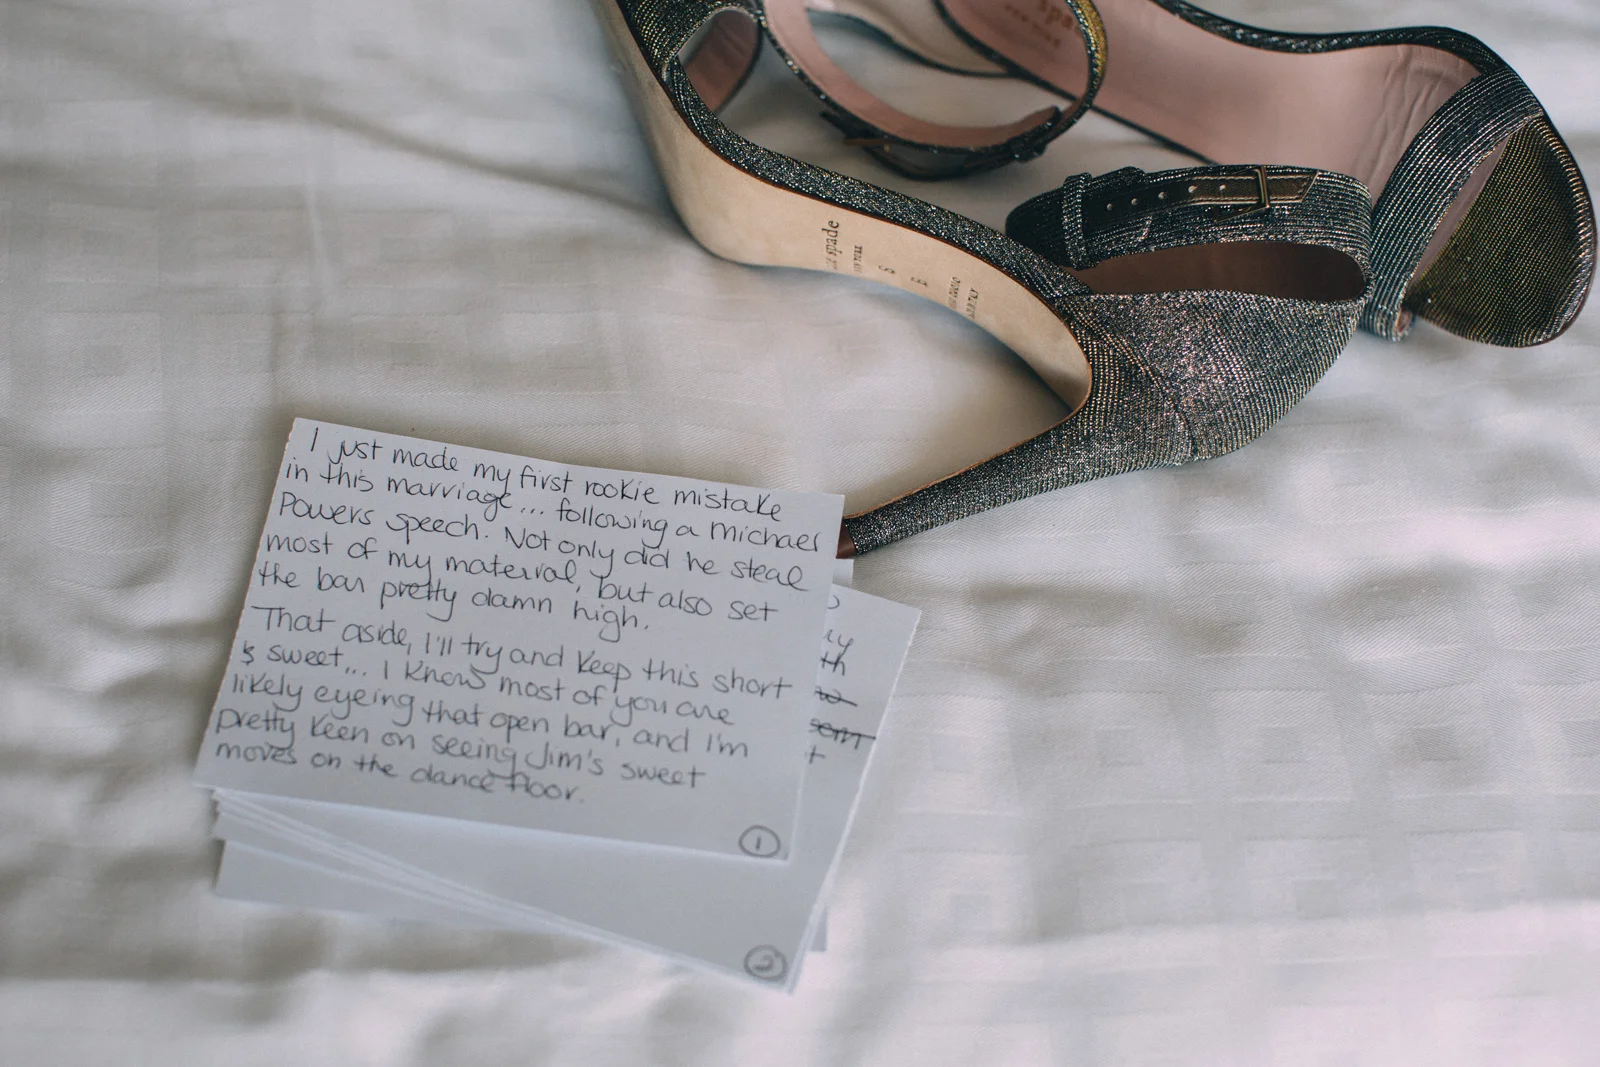 I just made my first rookie mistake
in this marriage... following a Michael
Powers speech. Not only did he steal
most of my material, but also set
the bar pretty damn high.
That aside, I'll try and keep this short
& sweet... I know most of you are
likely eyeing that open bar, and I'm
pretty keen on seeing Jim's sweet
moves on the dance floor.
1
2
spade